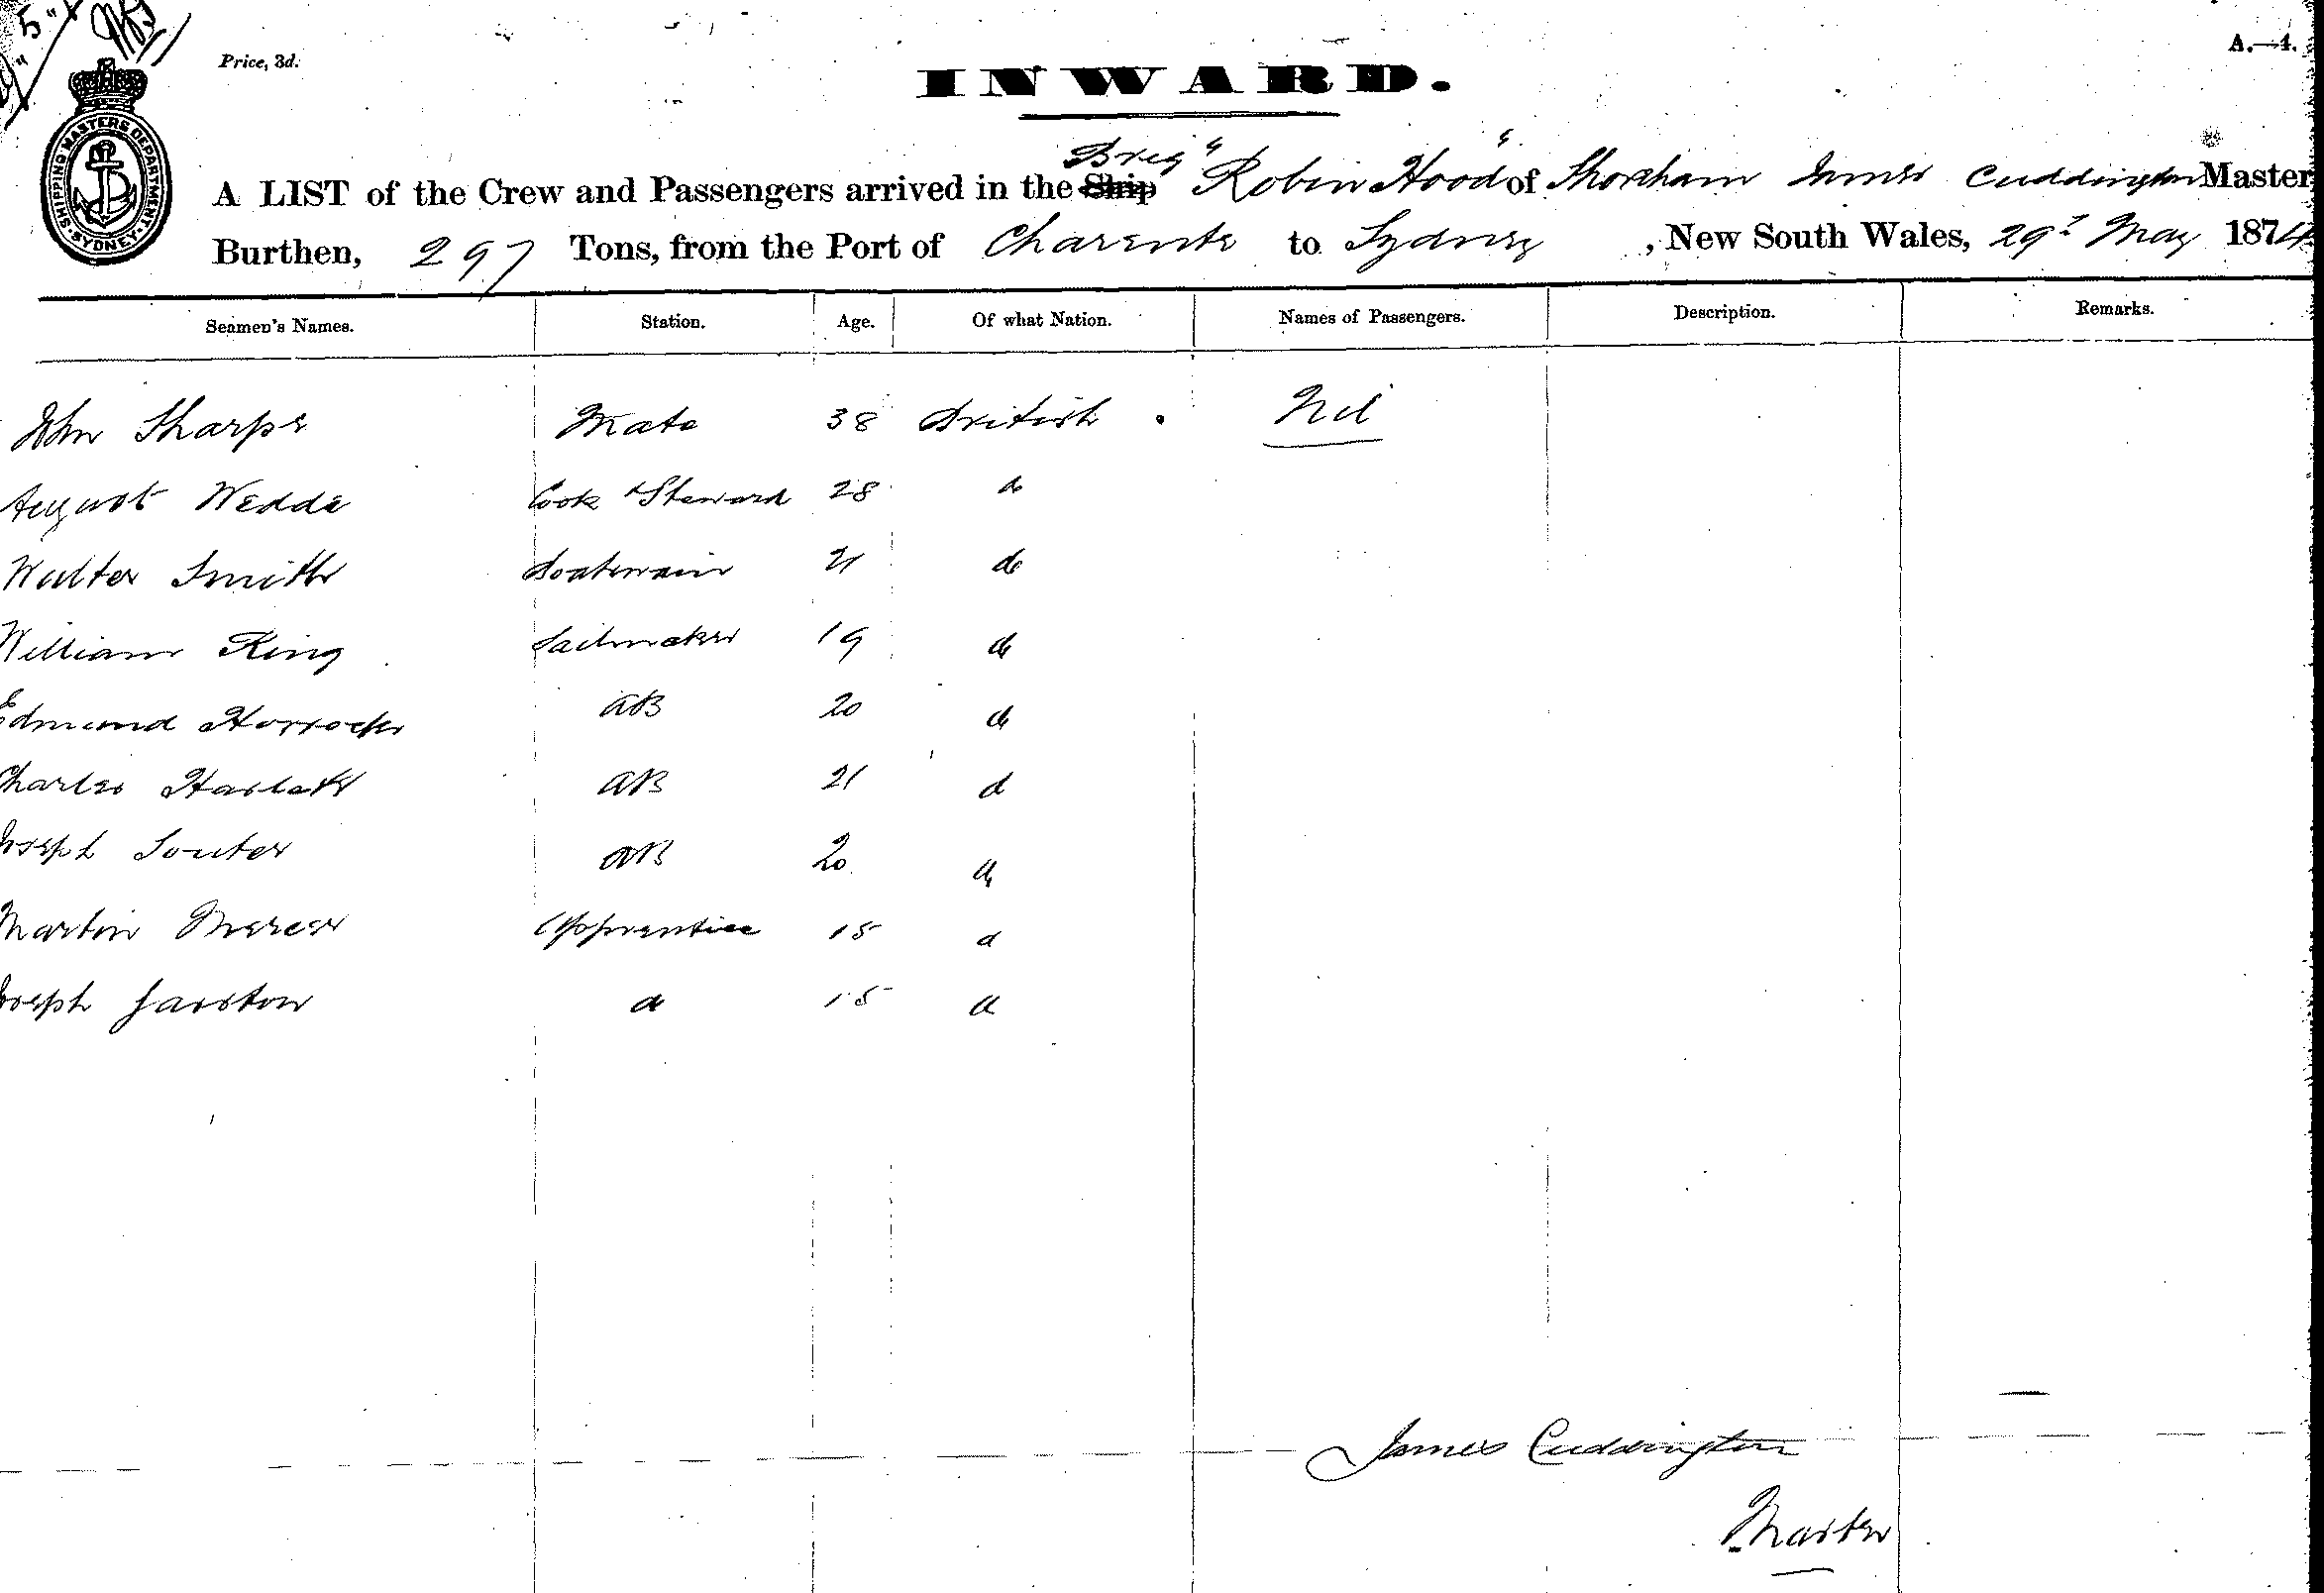 Price, 3d.
A.—4.
INWARD.
SHIPPING MASTERS DEPARTMENT SYDNEY
Brig
A LIST of the Crew and Passengers arrived in the Ship "Robin Hood" of Shoreham James Cuddington Master
Burthen, 297 Tons, from the Port of Charente to Sydney, New South Wales, 29th May 1874
Seamen's Names. Station. Age. Of what Nation. Names of Passengers. Description. Remarks.
John Sharpe Mate 38 British Nil
August Wedde Cook & Steward 28 do
Walter Smith Boatswain 21 do
William King Sailmaker 19 do
Edmund Horrocks AB 20 do
Charles Haslett AB 21 d
Joseph Souter AB 20 do
Martin Mercer Apprentice 15 d
Joseph d 15 d
James Cuddington
Master